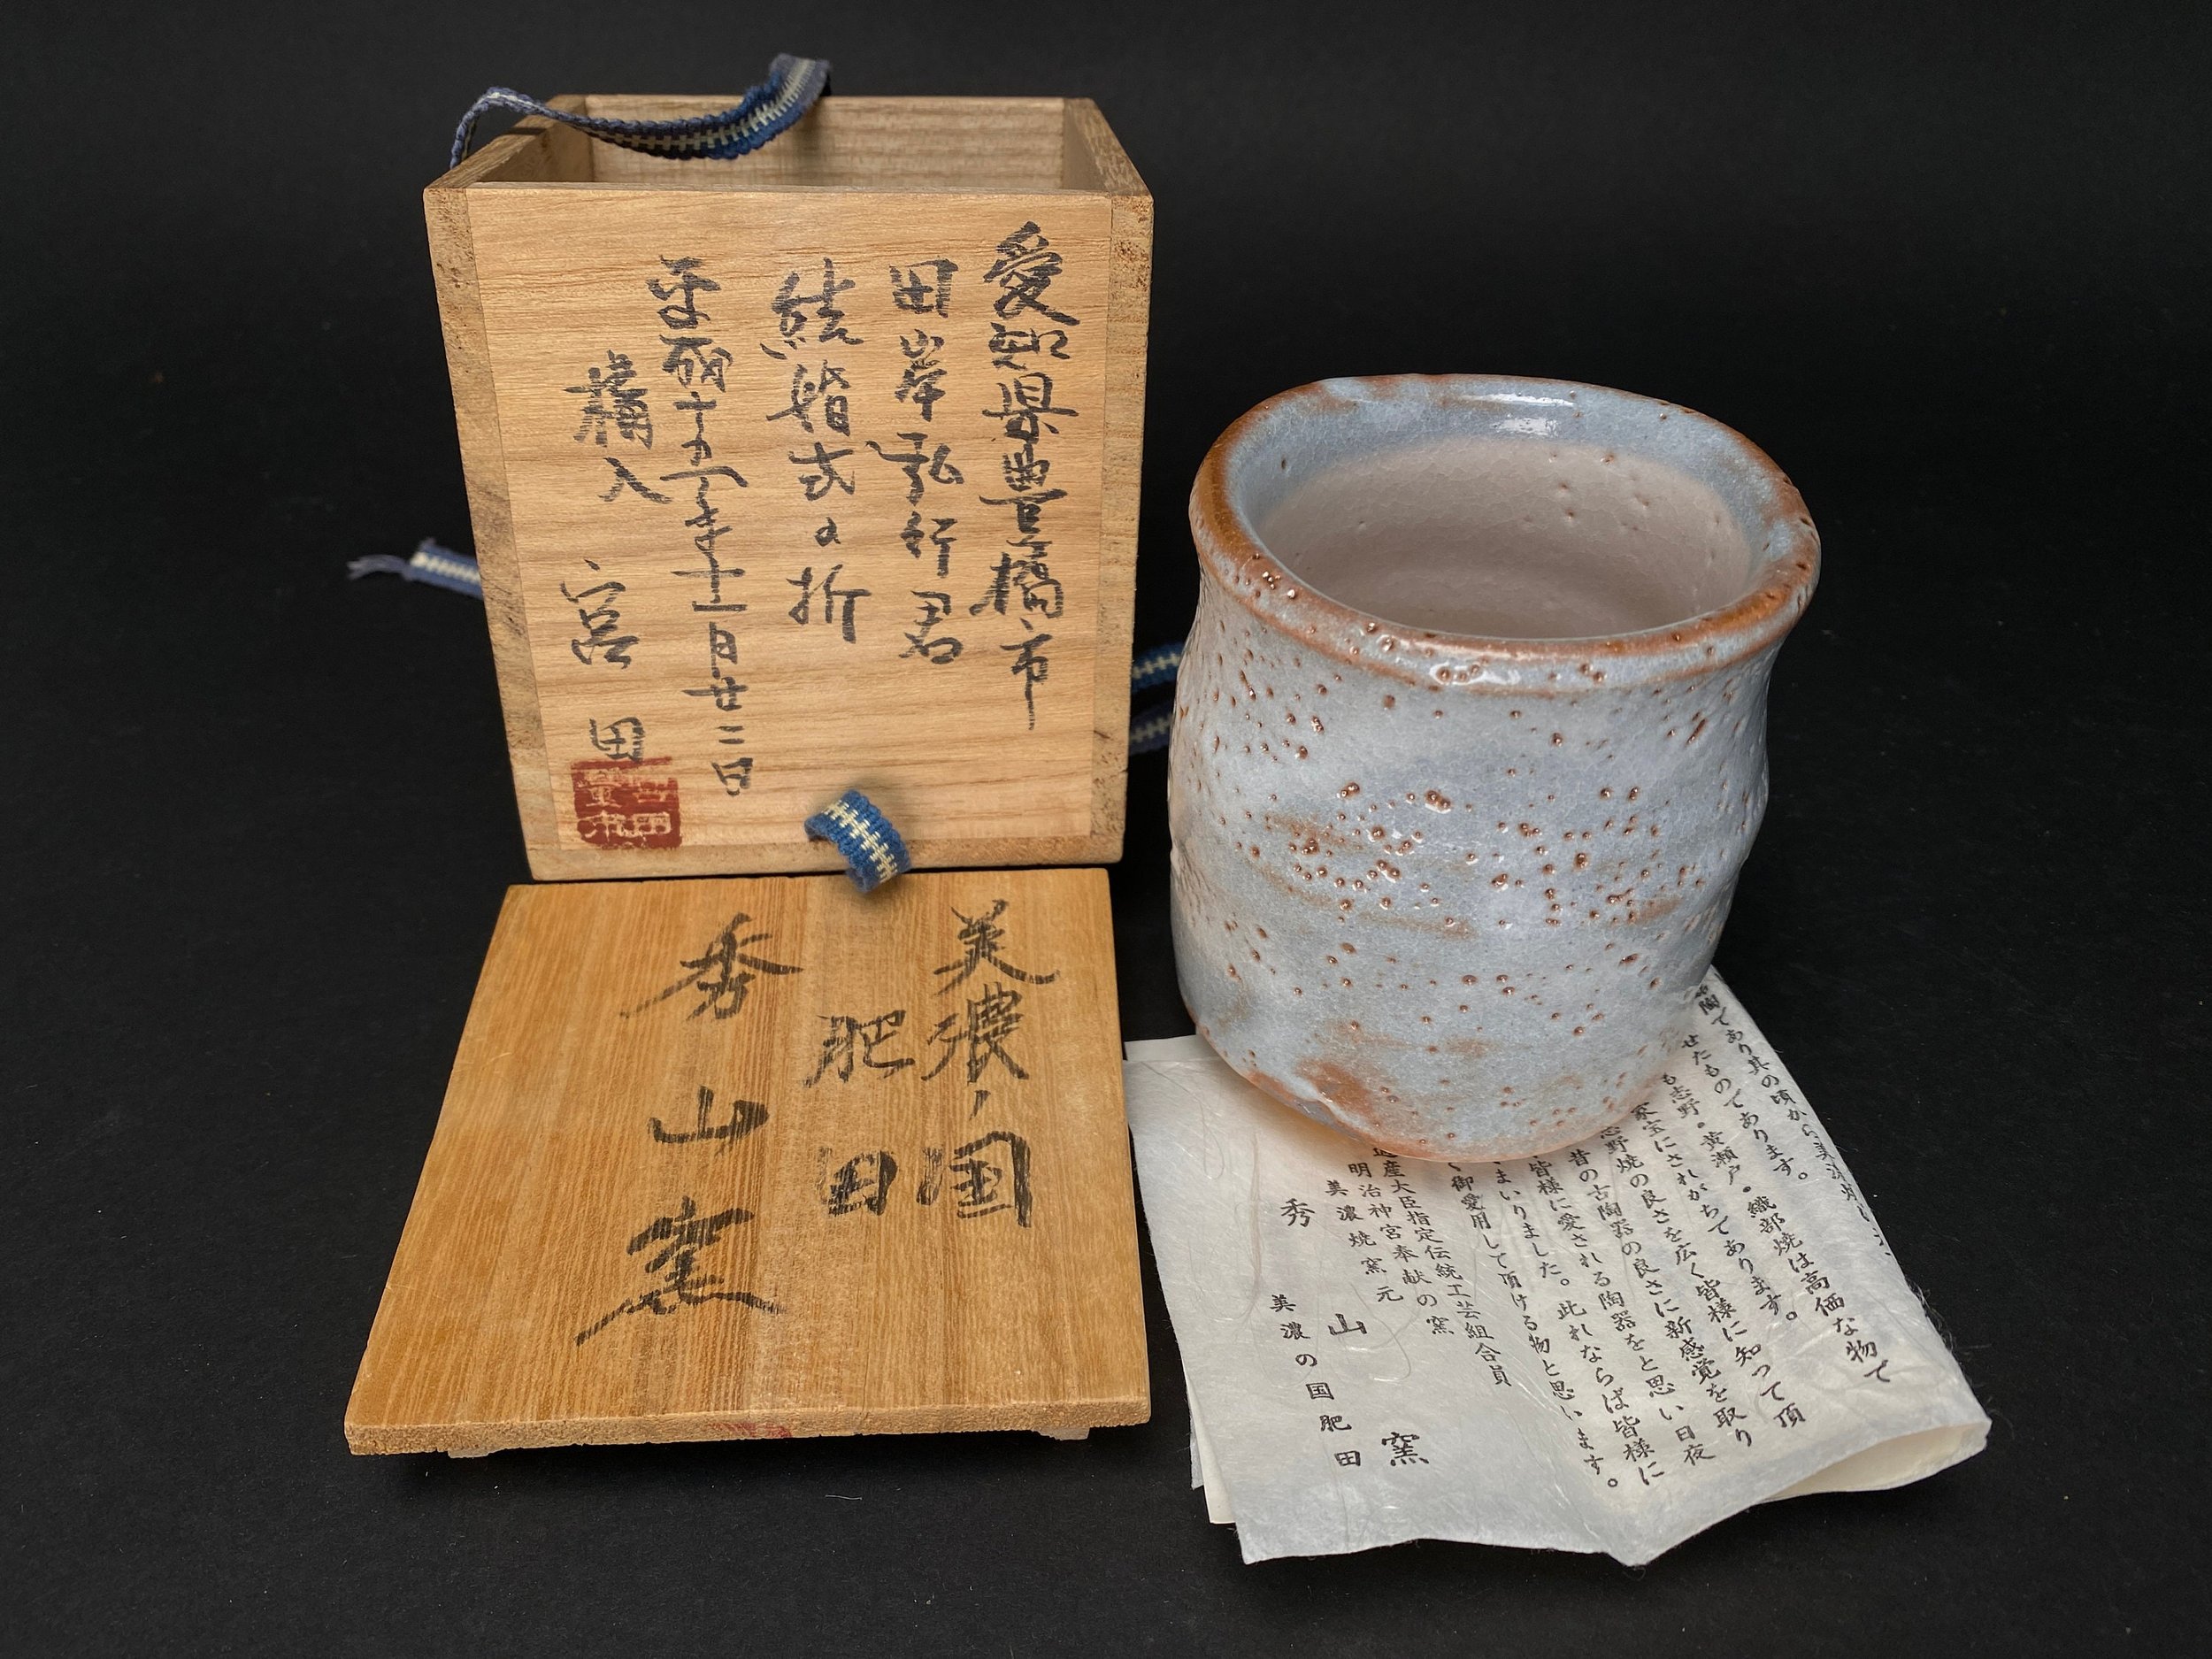 愛知県豊橋市
田岸弘行君
結婚式の折
平成十五年十一月廿二日
宮田
美濃ノ国
肥田
秀山窯
陶であり其の頃から美濃焼
せたものであります。
も志野・黄瀬戸・織部焼は高価な物で
家宝にされがちであります。
志野焼の良さを広く皆様に知って頂
昔の古陶器の良さに新感覚を取り
皆様に愛される陶器をと思い日夜
まいりました。此れならば皆様に
く御愛用して頂ける物と思います。
産大臣指定伝統工芸組合員
明治神宮奉献の窯
美濃焼窯元
秀山窯
美濃の国肥田